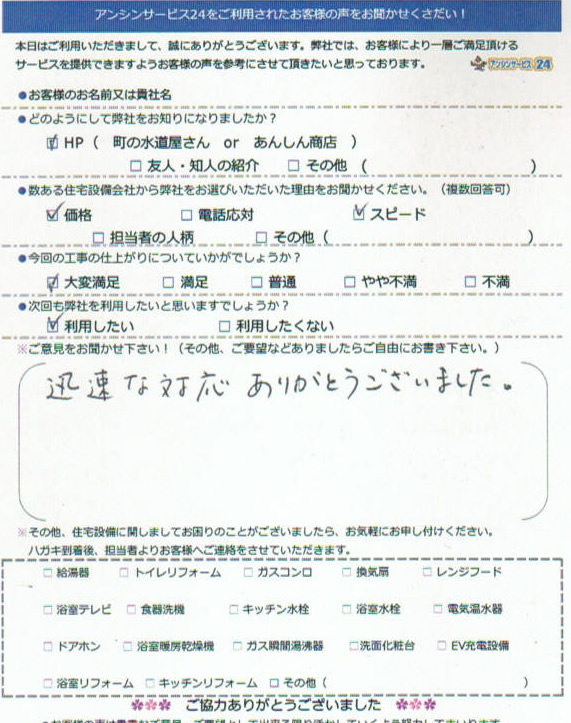 アンシンサービス24をご利用されたお客様の声をお聞かせくさだい！
本日はご利用いただきまして、誠にありがとうございます。弊社では、お客様により一層ご満足頂ける
サービスを提供できますようお客様の声を参考にさせて頂きたいと思っております。 アンシンサービス24
●お客様のお名前又は貴社名
●どのようにして弊社をお知りになりましたか？
☑HP（ 町の水道屋さん or あんしん商店 ）
□友人・知人の紹介 □その他（ ）
●数ある住宅設備会社から弊社をお選びいただいた理由をお聞かせください。（複数回答可）
☑価格 □電話応対 ☑スピード
□担当者の人柄 □その他（ ）
●今回の工事の仕上がりについていかがでしょうか？
☑大変満足 □満足 □普通 □やや不満 □不満
●次回も弊社を利用したいと思いますでしょうか？
☑利用したい □利用したくない
※ご意見をお聞かせ下さい！（その他、ご要望などありましたらご自由にお書き下さい。）
迅速な対応ありがとうございました。
※その他、住宅設備に関しましてお困りのことがございましたら、お気軽にお申し付けください。
ハガキ到着後、担当者よりお客様へご連絡をさせていただきます。
□給湯器 □トイレリフォーム □ガスコンロ □換気扇 □レンジフード
□浴室テレビ □食器洗機 □キッチン水栓 □浴室水栓 □電気温水器
□ドアホン □浴室暖房乾燥機 □ガス瞬間湯沸器 □洗面化粧台 □EV充電設備
□浴室リフォーム □キッチンリフォーム □その他（ ）
ご協力ありがとうございました